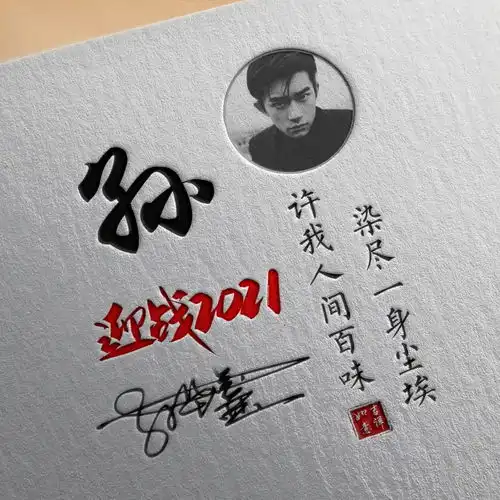 孙
迎战2021
染尽一身尘埃
许我人间百味
吉祥
如意